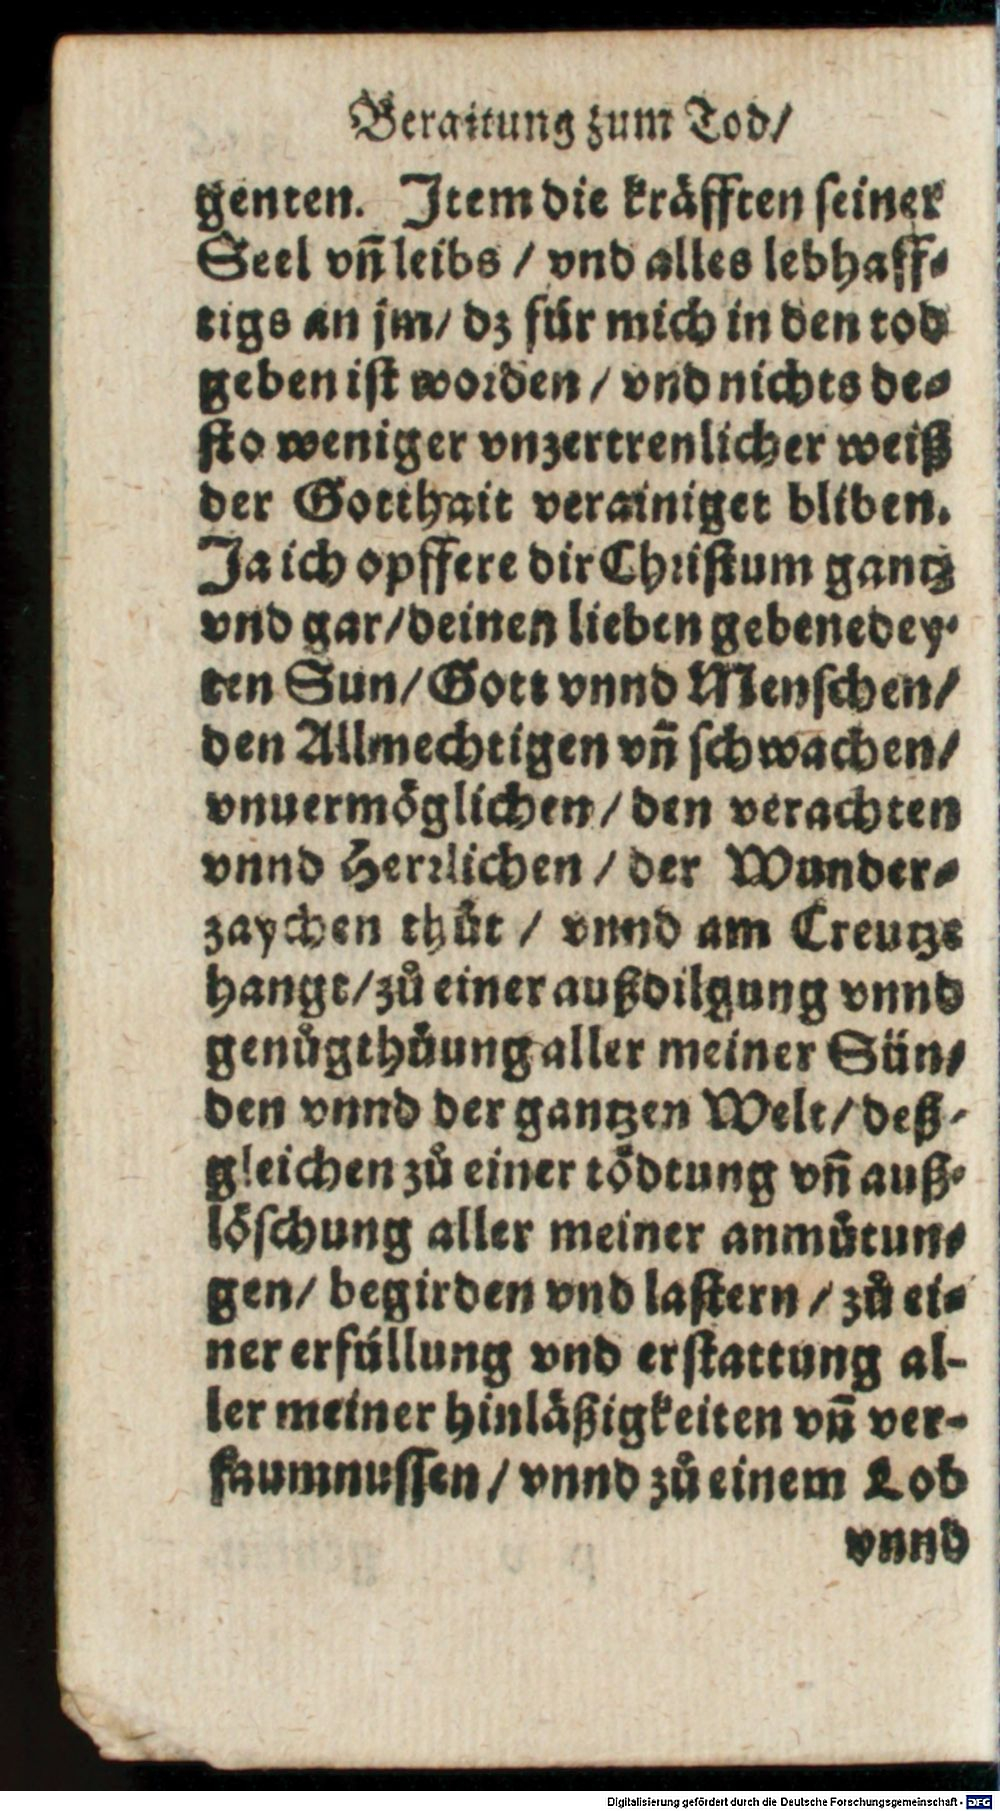 Beraitung zum Tod/
genten. Item die kräfften seiner
Seel vñ leibs / vnd alles lebhaff-
tigs an jm/ dz für mich in den tod
geben ist worden / vnd nichts de-
sto weniger vnzertrenlicher weiß
der Gotthait verainiget bliben.
Ja ich opffere dir Christum gantz
vnd gar/deinen lieben gebenedey-
ten Sun/Gott vnnd Menschen/
den Allmechtigen vñ schwachen/
vnuermöglichen/ den verachten
vnnd Herrlichen / der Wunder-
zaychen thůt / vnnd am Creutze
hangt/zů einer außdilgung vnnd
genůgthůung aller meiner Sün-
den vnnd der gantzen Welt/ deß-
gleichen zů einer tödtung vñ auß-
löschung aller meiner anmůtun-
gen/ begirden vnd lastern / zů ei-
ner erfüllung vnd erstattung al-
ler meiner hinläßigkeiten vñ ver-
saumnussen / vnnd zů einem Lob
vnnd
Digitalisierung gefördert durch die Deutsche Forschungsgemeinschaft - DFG